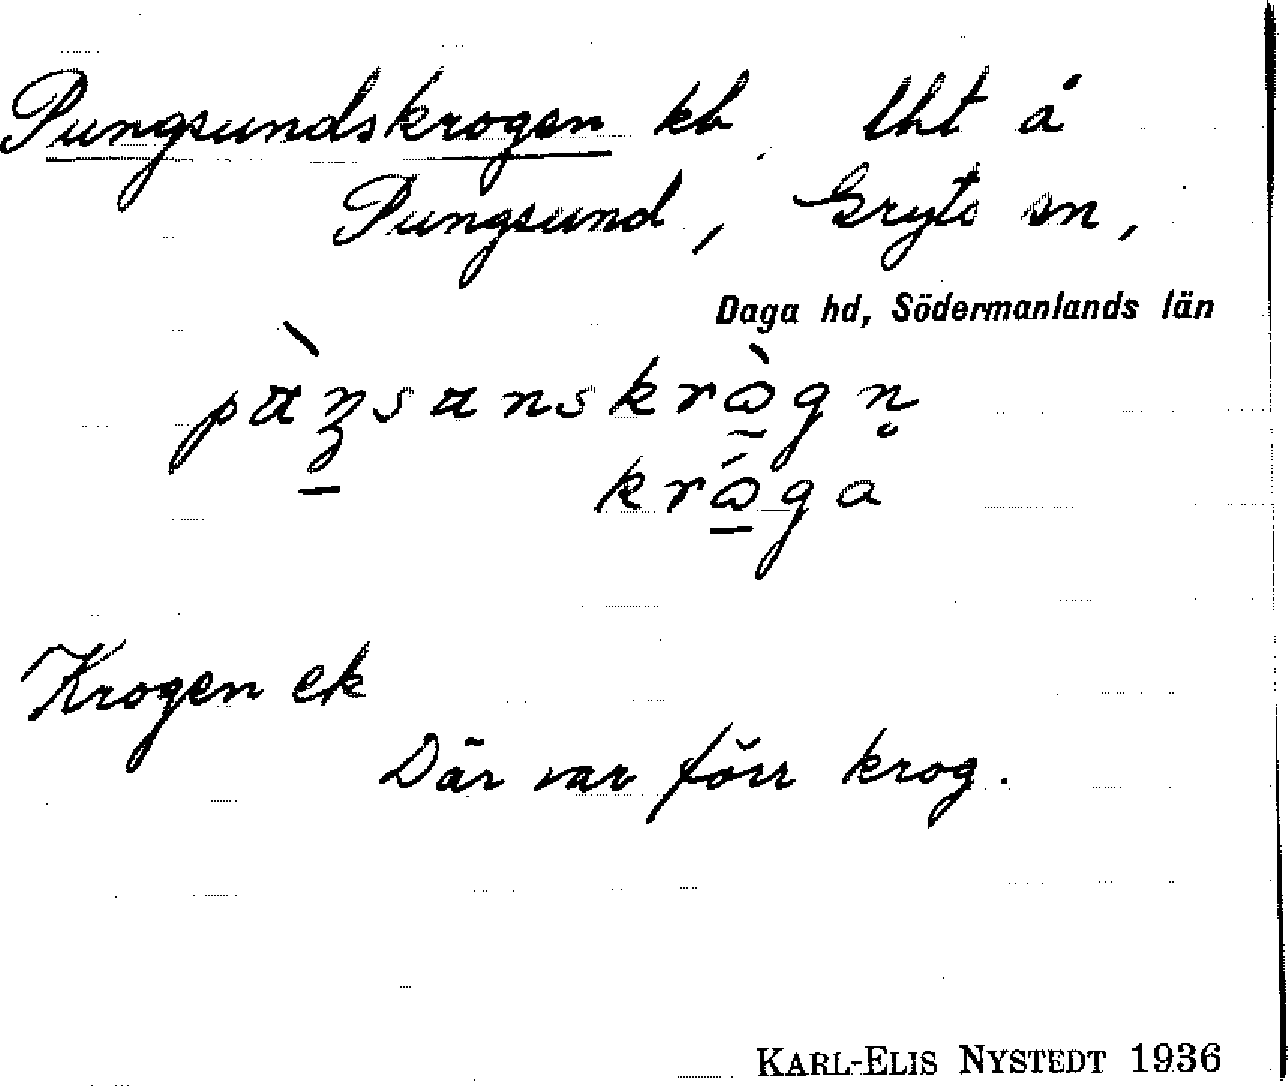 Pungsundskrogen kb lht å
Pungsund, Gryts sn,
Daga hd, Södermanlands län
Krogen ek
Där var förr krog.
KARL-ELIS NYSTEDT 1936